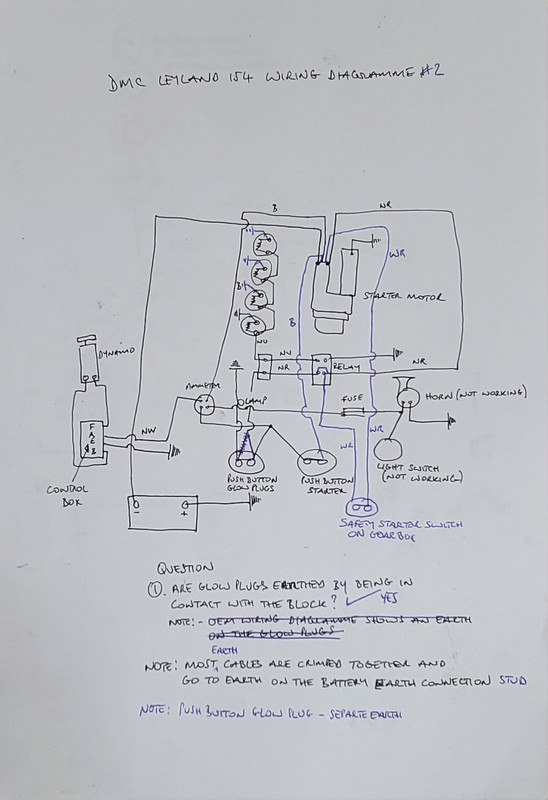 DMC LEYLAND 154 WIRING DIAGRAMME #2
B
NR
WR
STARTER MOTOR
B
NU
NU
NR
RELAY
NR
DYNAMO
AMMETER
LAMP
FUSE
HORN (NOT WORKING)
F
A
E
B
NW
WR
WR
LIGHT SWITCH
(NOT WORKING)
CONTROL
BOX
PUSH BUTTON
GLOW PLUGS
PUSH BUTTON
STARTER
- +
SAFETY STARTER SWITCH
ON GEARBOX
QUESTION
① ARE GLOW PLUGS EARTHED BY BEING IN
CONTACT WITH THE BLOCK? YES
NOTE:- OEM WIRING DIAGRAMME SHOWS AN EARTH
ON THE GLOW PLUGS
EARTH
NOTE: MOST CABLES ARE CRIMPED TOGETHER AND
GO TO EARTH ON THE BATTERY EARTH CONNECTION STUD
NOTE: PUSH BUTTON GLOW PLUG - SEPARTE EARTH